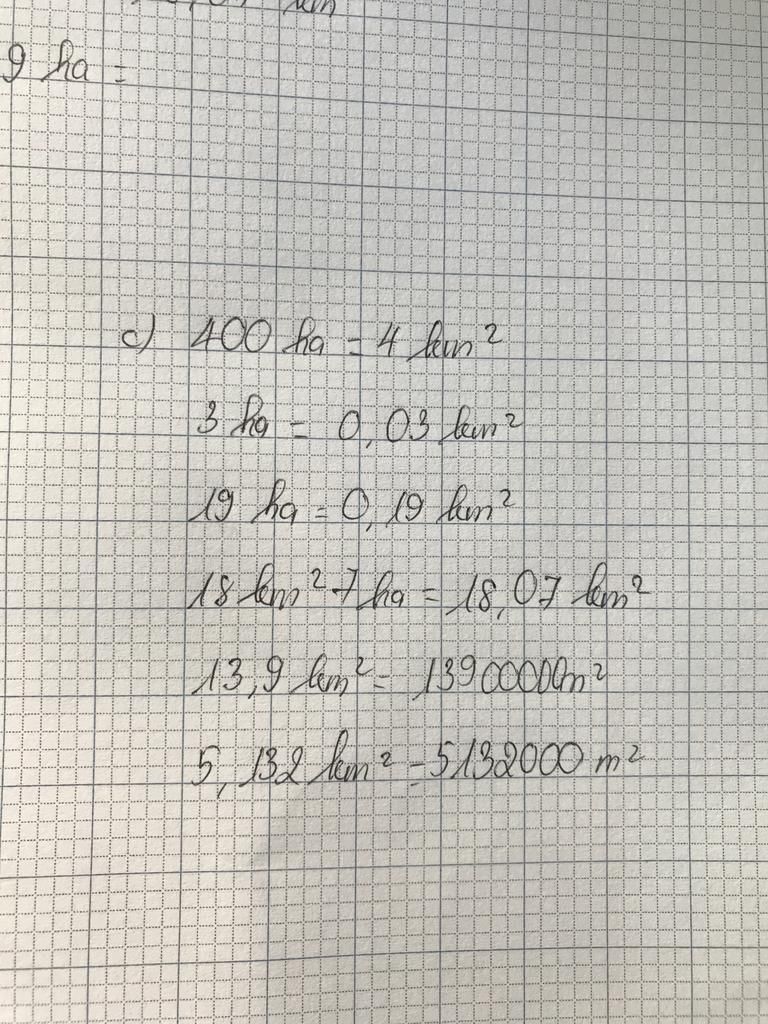 9 ha =
c) 400 ha = 4 km²
3 ha = 0,03 km²
19 ha = 0,19 km²
18 km² 7 ha = 18,07 km²
13,9 km² = 13900000m²
5,132 km² = 5132000 m²